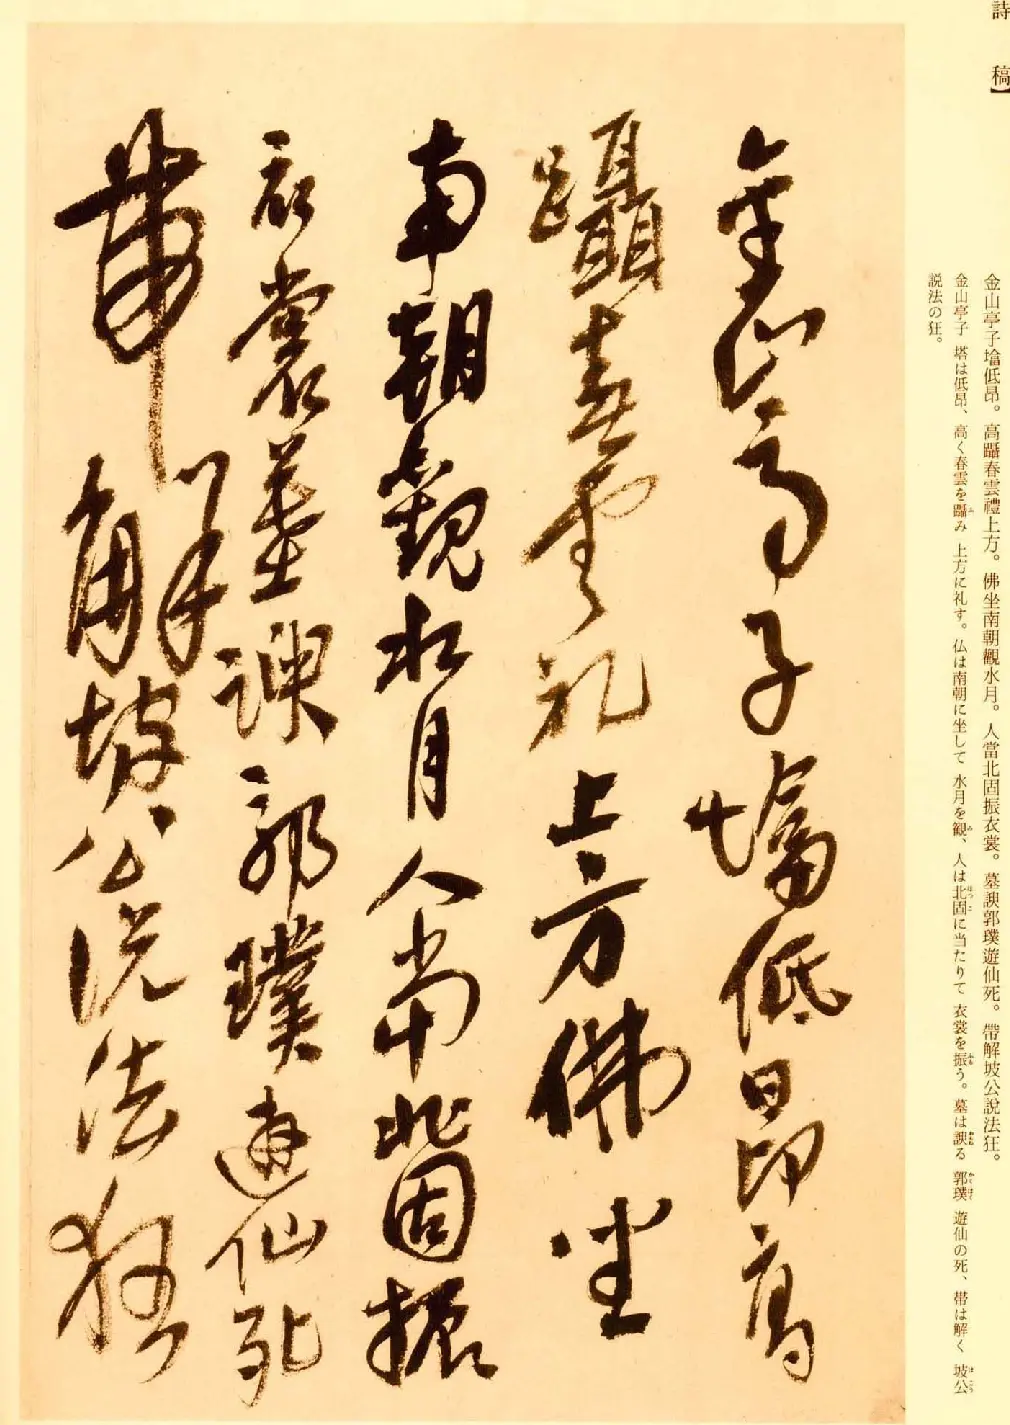 詩稿】
金山亭子墖低昂。高躡春雲禮上方。佛坐南朝觀水月。人當北固振衣裳。墓諛郭璞遊仙死。帶解坡公說法狂。
金山亭子 塔は低昂、高く春雲を躡み 上方に礼す。仏は南朝に坐して 水月を観、人は北固に当たりて 衣裳を振う。墓は諛る 郭璞 遊仙の死、帯は解く 坡公
説法の狂。
金山亭子墖低昂高
躡春雲礼上方佛坐
南朝觀水月人當北固振
衣裳墓諛郭璞遊仙死
帶解坡公說法狂